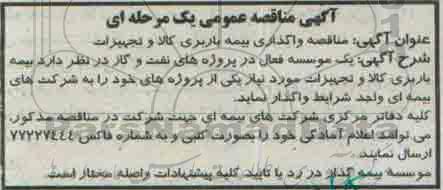 آگهی مناقصه عمومی یک مرحله ای
عنوان آگهی: مناقصه واگذاری بیمه باربری کالا و تجهیزات
شرح آگهی: یک موسسه فعال در پروژه های نفت و گاز در نظر دارد بیمه
باربری کالا و تجهیزات مورد نیاز یکی از پروژه های خود را به شرکت های
بیمه ای واجد شرایط واگذار نماید.
کلیه دفاتر مرکزی شرکت های بیمه ای جهت شرکت در مناقصه مذکور،
می توانند اعلام آمادگی خود را بصورت کتبی و به شماره فاکس ۷۷۲۲۷۴۴۴
ارسال نمایند.
موسسه بیمه گذار در رد یا تایید کلیه پیشنهادات واصله مختار است.